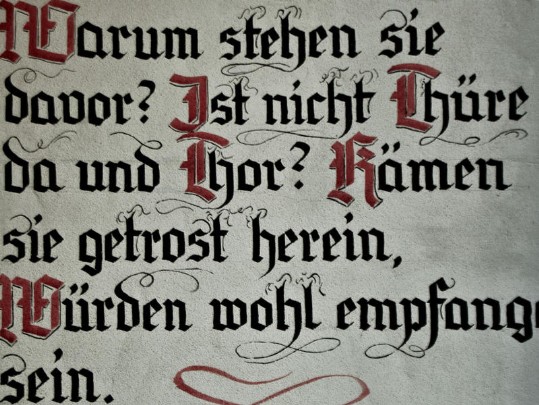 Warum stehen sie
davor? Ist nicht Thüre
da und Thor? Kämen
sie getrost herein,
Würden wohl empfange
sein.